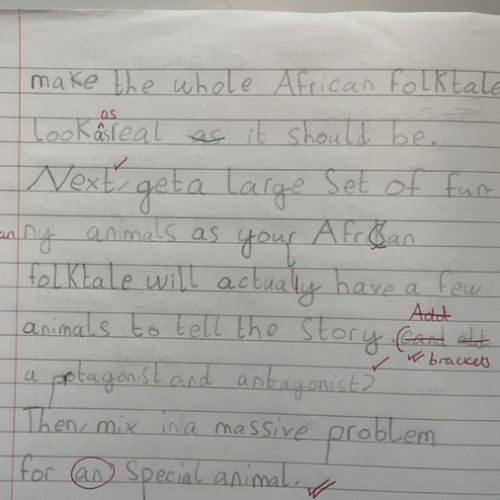 make the whole African folktale
look as real as it should be.
Next, get a large Set of fun
ny animals as your African
folktale will actually have a few
animals to tell the Story. (and add Add
brackets
a protagonist and antagonist)
Then, mix in a massive problem
for an Special animal.